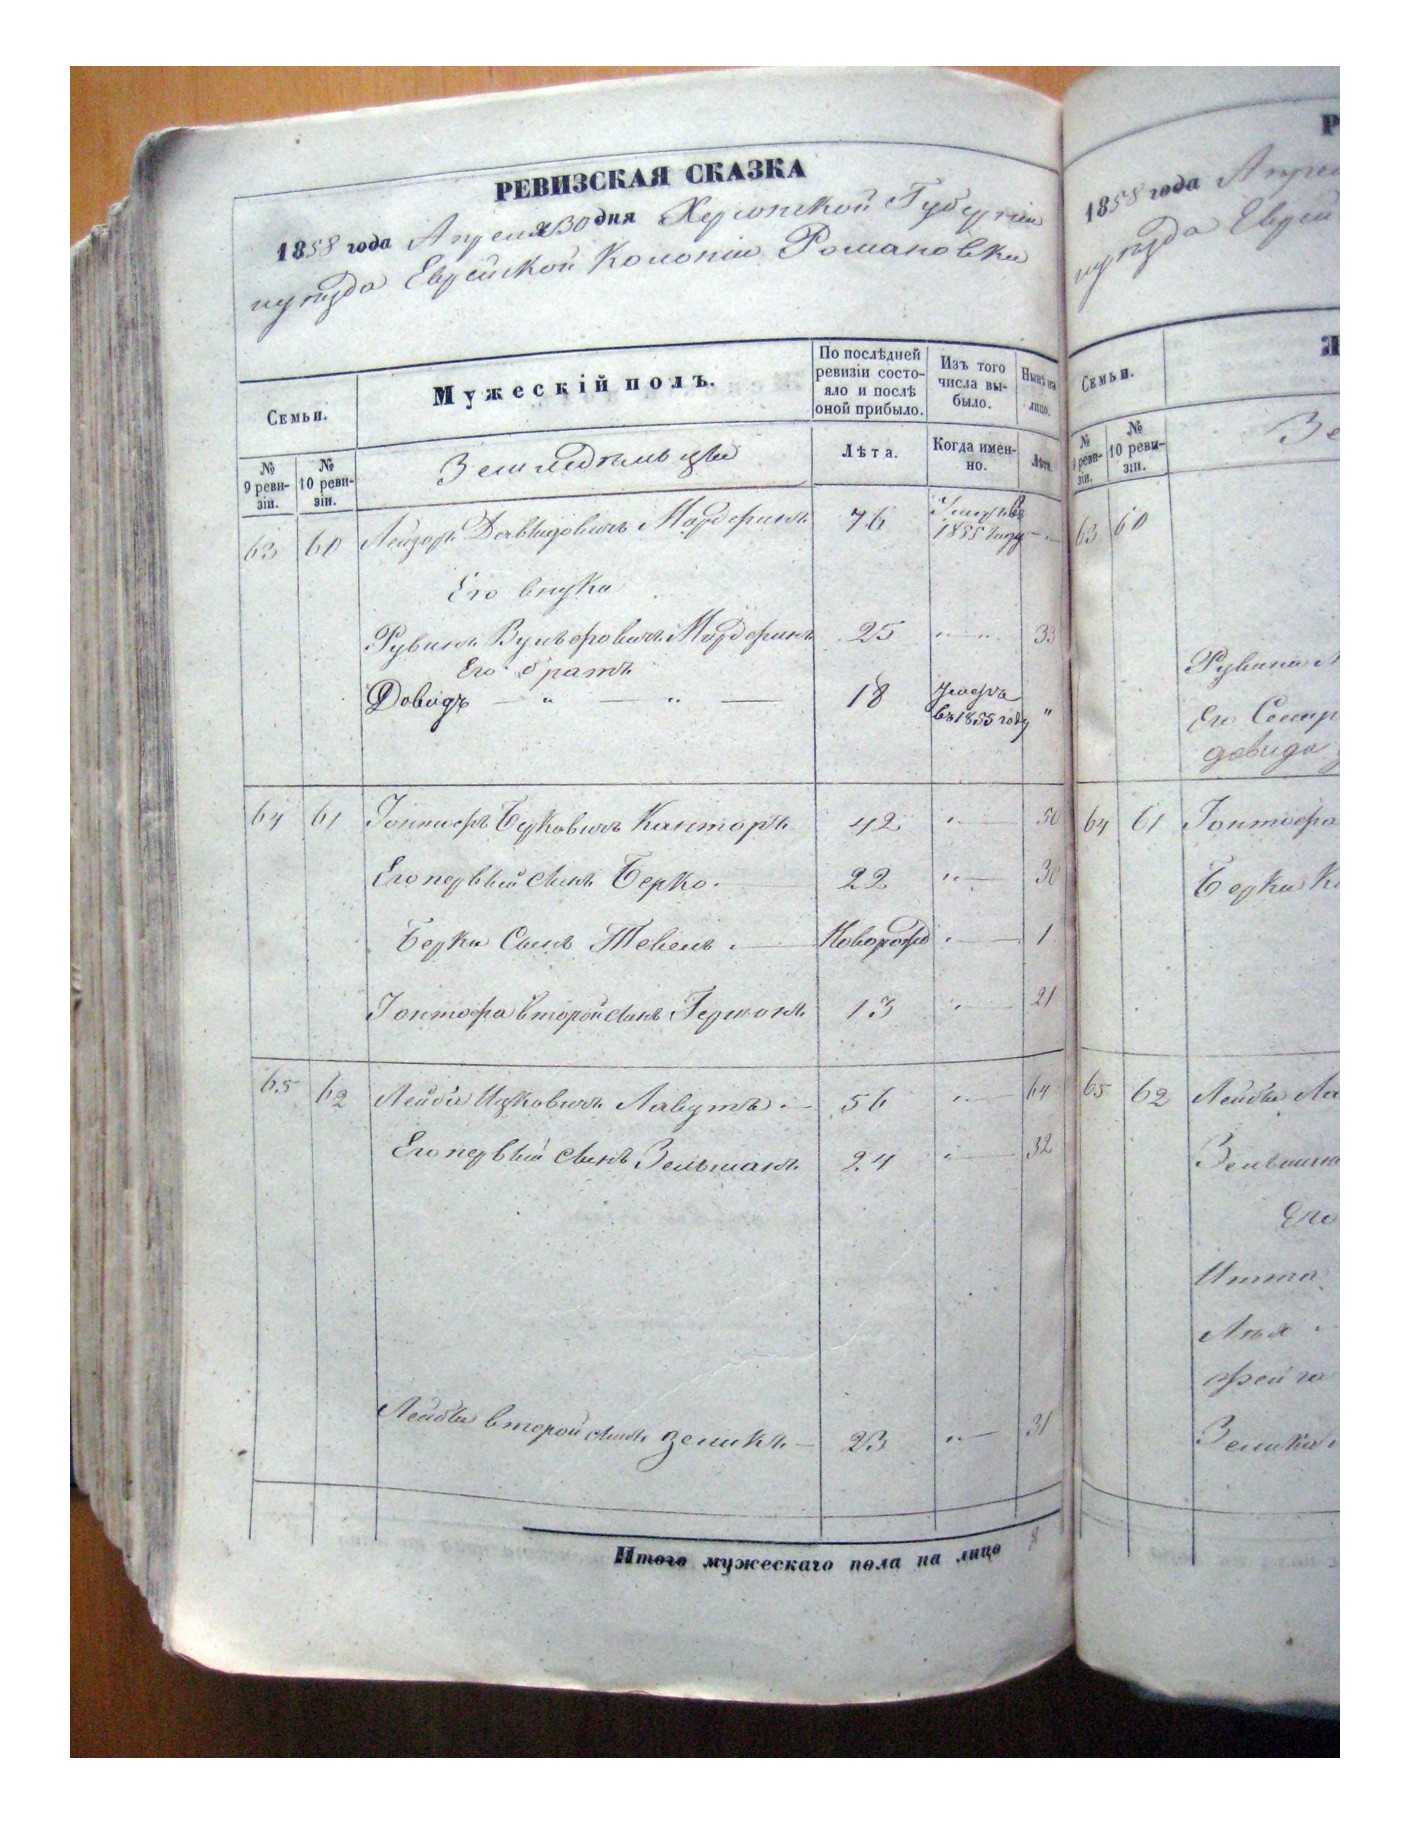 РЕВИЗСКАЯ СКАЗКА
1858 года Апреля 30 дня Херсонской Губерніи
уѣзда Еврейской Колоніи Романовки
Семьи.
Мужескій полъ.
По послѣдней ревизіи состояло и послѣ оной прибыло.
Изъ того числа выбыло.
Нынѣ на лицо.
№ 9 ревизіи.
№ 10 ревизіи.
Земледѣльцы
Лѣта.
Когда именно.
Лѣта.
63 60 Лейзоръ Довыдовичъ 76 Умеръ въ 1855 году
Его внуки
Рувинъ 25 " " 33
Его братъ
Довидъ — " — " — 18 Умеръ въ 1855 году "
64 61 Іонтофъ Берковичъ Канторъ 42 " — 50
Его первый сынъ Берко. 22 " — 30
Берки Сынъ Тевель. Новорожд " — 1
Іонтофа второй сынъ Гершонъ 13 " — 21
65 62 Лейба Ицковичъ Лавутъ 56 " — 64
Его первый сынъ Зельманъ 24 " — 32
Лейбы второй сынъ Зеликъ — 23 " — 31
Итого мужескаго пола на лицо 8
Р
1858 года Апрел
уѣзда Еврей
Семьи.
№ 9 ревизіи.
№ 10 ревизіи.
Зе
63 60
Рувина
Его Сестр
Довида
64 61 Іонтофа
Берки К
65 62 Лейбы Ла
Зельмана
Его
Итта
Лея
Фейга
Зелика